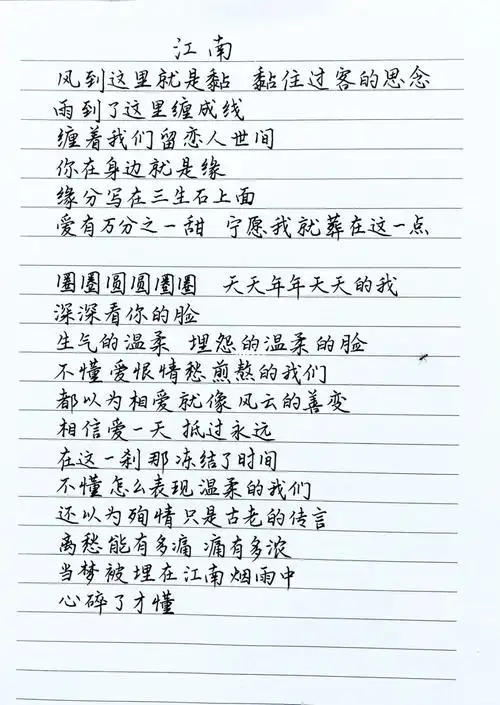 江南
风到这里就是黏 黏住过客的思念
雨到了这里缠成线
缠着我们留恋人世间
你在身边就是缘
缘分写在三生石上面
爱有万分之一甜 宁愿我就葬在这一点
圈圈圆圆圈圈 天天年年天天的我
深深看你的脸
生气的温柔 埋怨的温柔的脸
不懂爱恨情愁煎熬的我们
都以为相爱就像风云的善变
相信爱一天 抵过永远
在这一刹那冻结了时间
不懂怎么表现温柔的我们
还以为殉情只是古老的传言
离愁能有多痛 痛有多浓
当梦被埋在江南烟雨中
心碎了才懂